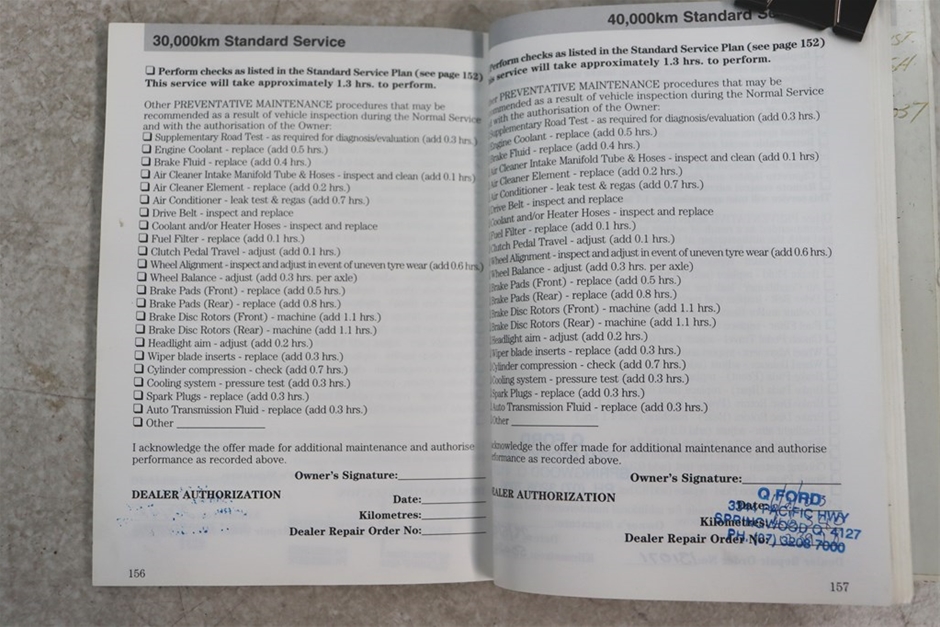 30,000km Standard Service
❏ Perform checks as listed in the Standard Service Plan (see page 152)
This service will take approximately 1.3 hrs. to perform.
Other PREVENTATIVE MAINTENANCE procedures that may be
recommended as a result of vehicle inspection during the Normal Service
and with the authorisation of the Owner:
❏ Supplementary Road Test - as required for diagnosis/evaluation (add 0.3 hrs.)
❏ Engine Coolant - replace (add 0.5 hrs.)
❏ Brake Fluid - replace (add 0.4 hrs.)
❏ Air Cleaner Intake Manifold Tube & Hoses - inspect and clean (add 0.1 hrs)
❏ Air Cleaner Element - replace (add 0.2 hrs.)
❏ Air Conditioner - leak test & regas (add 0.7 hrs.)
❏ Drive Belt - inspect and replace
❏ Coolant and/or Heater Hoses - inspect and replace
❏ Fuel Filter - replace (add 0.1 hrs.)
❏ Clutch Pedal Travel - adjust (add 0.1 hrs.)
❏ Wheel Alignment - inspect and adjust in event of uneven tyre wear (add 0.6 hrs.)
❏ Wheel Balance - adjust (add 0.3 hrs. per axle)
❏ Brake Pads (Front) - replace (add 0.5 hrs.)
❏ Brake Pads (Rear) - replace (add 0.8 hrs.)
❏ Brake Disc Rotors (Front) - machine (add 1.1 hrs.)
❏ Brake Disc Rotors (Rear) - machine (add 1.1 hrs.)
❏ Headlight aim - adjust (add 0.2 hrs.)
❏ Wiper blade inserts - replace (add 0.3 hrs.)
❏ Cylinder compression - check (add 0.7 hrs.)
❏ Cooling system - pressure test (add 0.3 hrs.)
❏ Spark Plugs - replace (add 0.3 hrs.)
❏ Auto Transmission Fluid - replace (add 0.3 hrs.)
❏ Other
I acknowledge the offer made for additional maintenance and authorise
performance as recorded above.
Owner's Signature:
DEALER AUTHORIZATION
Date:
Kilometres:
Dealer Repair Order No:
156
40,000km Standard
Perform checks as listed in the Standard Service Plan (see page 152)
service will take approximately 1.3 hrs. to perform.
PREVENTATIVE MAINTENANCE procedures that may be
recommended as a result of vehicle inspection during the Normal Service
with the authorisation of the Owner:
Supplementary Road Test - as required for diagnosis/evaluation (add 0.3 hrs.)
Engine Coolant - replace (add 0.5 hrs.)
Brake Fluid - replace (add 0.4 hrs.)
Air Cleaner Intake Manifold Tube & Hoses - inspect and clean (add 0.1 hrs)
Air Cleaner Element - replace (add 0.2 hrs.)
Air Conditioner - leak test & regas (add 0.7 hrs.)
Drive Belt - inspect and replace
Coolant and/or Heater Hoses - inspect and replace
Fuel Filter - replace (add 0.1 hrs.)
Clutch Pedal Travel - adjust (add 0.1 hrs.)
Wheel Alignment - inspect and adjust in event of uneven tyre wear (add 0.6 hrs.)
Wheel Balance - adjust (add 0.3 hrs. per axle)
Brake Pads (Front) - replace (add 0.5 hrs.)
Brake Pads (Rear) - replace (add 0.8 hrs.)
Brake Disc Rotors (Front) - machine (add 1.1 hrs.)
Brake Disc Rotors (Rear) - machine (add 1.1 hrs.)
Headlight aim - adjust (add 0.2 hrs.)
Wiper blade inserts - replace (add 0.3 hrs.)
Cylinder compression - check (add 0.7 hrs.)
Cooling system - pressure test (add 0.3 hrs.)
Spark Plugs - replace (add 0.3 hrs.)
Auto Transmission Fluid - replace (add 0.3 hrs.)
Other
acknowledge the offer made for additional maintenance and authorise
performance as recorded above.
Owner's Signature:
DEALER AUTHORIZATION
Date:
Kilometres:
Dealer Repair Order No:
Q FORD
PACIFIC HWY
SPRINGWOOD Q. 4127
PH. (07) 3208 7000
157